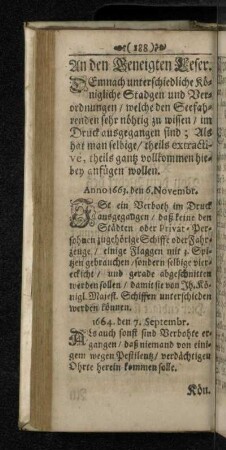 ( 188 )
An den Geneigten Leser.
DEmnach unterschiedliche Kö-
nigliche Stadgen und Ver-
ordnungen / welche den Seefah-
renden sehr nöhtig zu wissen / im
Druck ausgegangen sind; Als
hat man selbige / theils extracti-
ve, theils gantz vollkommen hie-
bey anfügen wollen.
Anno 1663. den 6. Novembr.
ISt ein Verboth im Druck
ausgegangen / daß keine den
Städten oder Privat-Per-
sohnen zugehörige Schiffe oder Fahr-
zeuge / einige Flaggen mit 3. Spi-
tzen gebrauchen / sondern selbige vier-
eckicht / und gerade abgeschnitten
werden sollen / damit sie von Ih. Kö-
nigl. Majest. Schiffen unterschieden
werden können.
1664. den 7. Septembr.
Als auch sonst sind Verbohte er-
gangen / daß niemand von eini-
gem wegen Pestilentz / verdächtigen
Ohrte herein kommen solle.
Kön.